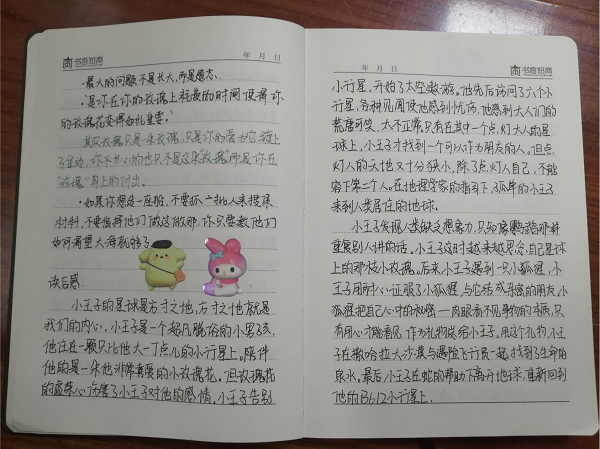 书香知尚
年 月 日
·最大的问题不是长大,而是遗忘.
·"是你在你的玫瑰上耗费的时间使得你
的玫瑰花变得如此重要."
其实玫瑰只是一朵玫瑰,只是你的爱为它镀上
了金边,你不甘心的也只不是这朵"玫瑰"而是你在
"玫瑰"身上的付出.
·如果你想造一座船,不要抓一批人来搜集
材料,不要指挥他们做这做那,你只要教他们
如何渴望大海就够了
读后感:
小王子的星球是方寸之地,方寸之地就是
我们的内心,小王子是一个超凡脱俗的小男孩,
他住在一颗只比他大一丁点儿的小行星上.陪伴
他的是一朵他非常喜爱的小玫瑰花。但玫瑰花
的虚荣心伤害了小王子对他的感情,小王子告别
年 月 日
书香知尚
小行星,开始了太空遨游。他先后访问了六个小
行星,各种见闻使他感到忧伤,他感到大人们的
荒唐可笑、太不正常.只有在其中一个点灯大人的星
球上,小王子才找到一个可以作为朋友的人。但点
灯人的天地又十分狭小,除了点灯人自己,不能
容下第二个人。在地理学家的指引下,孤单的小王子
来到人类居住的地球.
小王子发现人类缺乏想象力,只知像鹦鹉那样
重复别人讲的话。小王子这时越来越思念自己星球
上的那枝小玫瑰。后来,小王子遇到一只小狐狸,小
王子用耐心征服了小狐狸,与它结成了亲密的朋友,小
狐狸把自己心中的秘密——肉眼看不见事物的本质,只
有用心才能看见,作为礼物送给小王子.用这个礼物,小王
子在撒哈拉大沙漠与遇险飞行员一起找到了生命的
泉水。最后,小王子在蛇的帮助下离开地球,重新回到
他的B612小行星上.